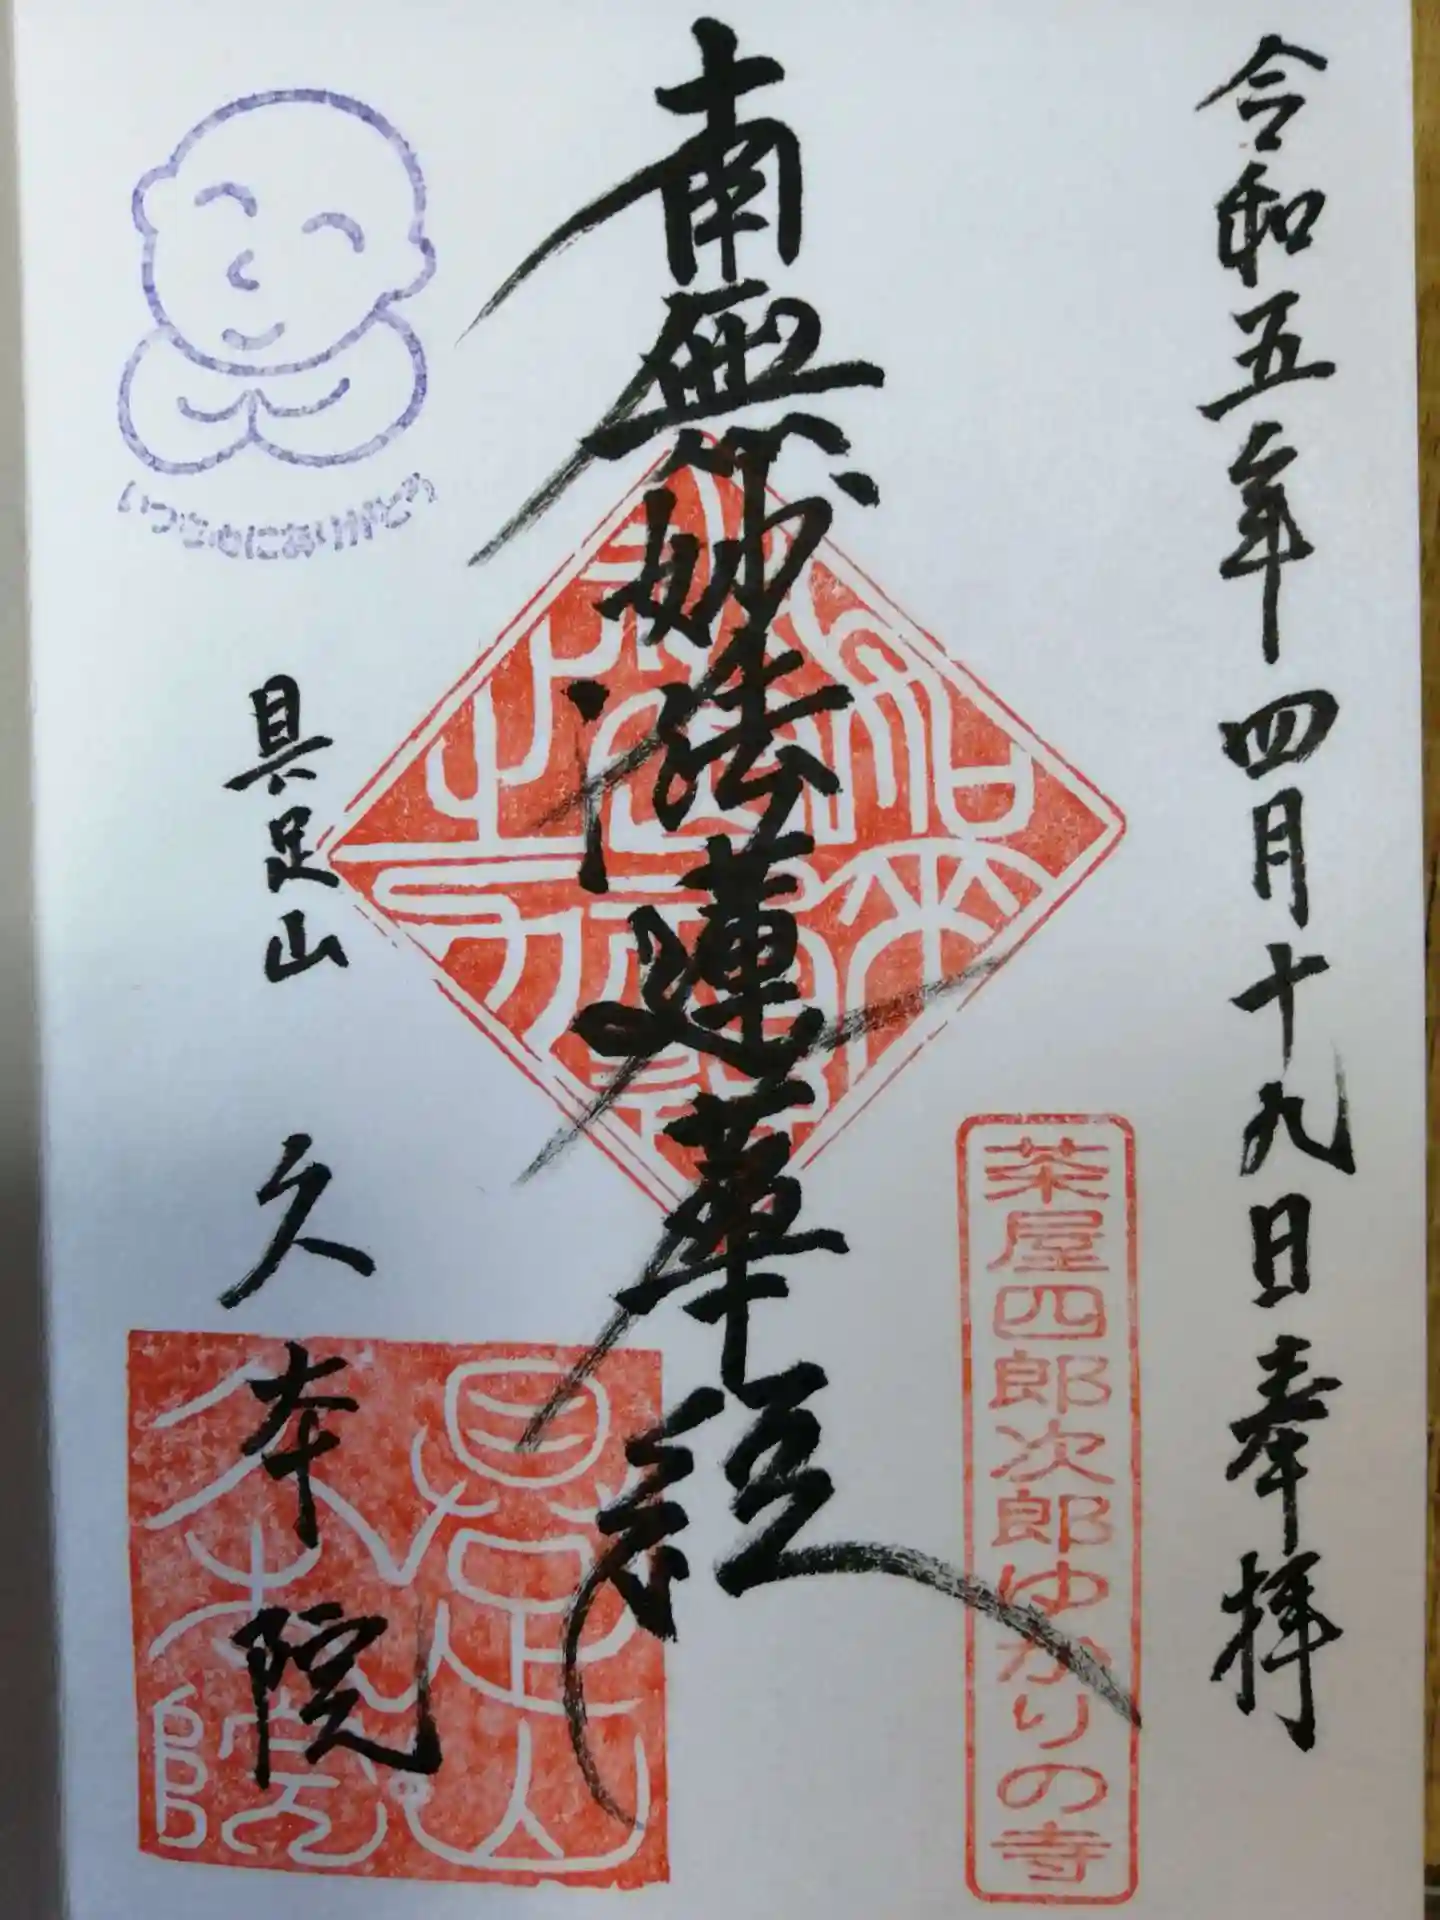 令和五年四月十九日奉拝
茶屋四郎次郎ゆかりの寺
南無妙法蓮華経
いつも心にありがとう
具足山
久本院
具足山
久本院